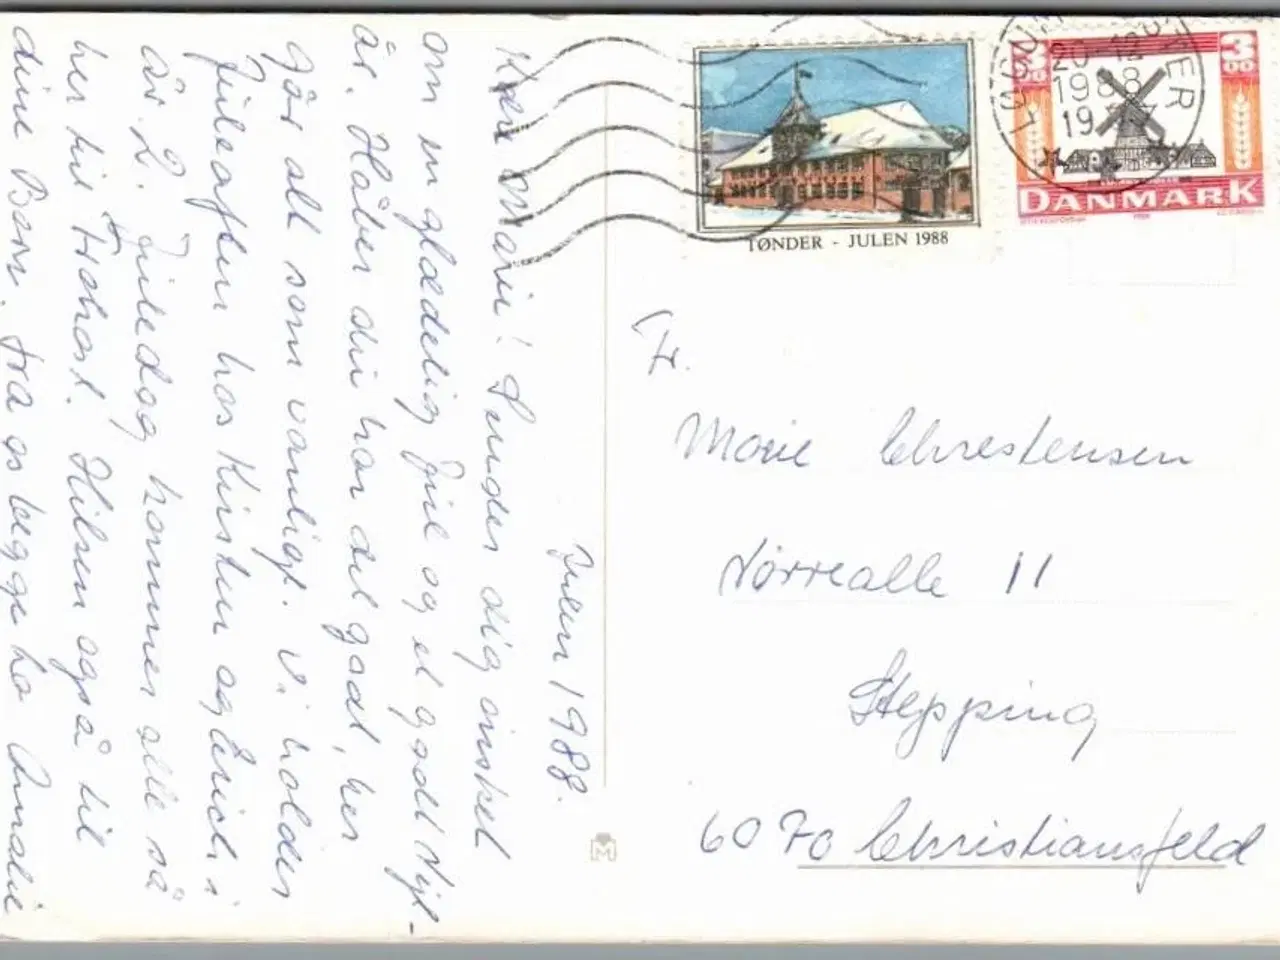 Julen 1988.
Kære Marie! Sender dig ønsket
om en glædelig Jul og et godt Nyt-
år. Håber du har det godt, her
går alt som vanligt. Vi holder
Juleaften hos Kirsten og Erich i
år. 2. Juledag kommer alle så
her til Frokost. Hilsen også til
dine Børn. Fra os begge to
TØNDER - JULEN 1988
3 00
3 00
20 12
1988
19
DANMARK
Fr.
Marie Chrestensen
Nørrealle 11
Stepping
6070 Christiansfeld
M